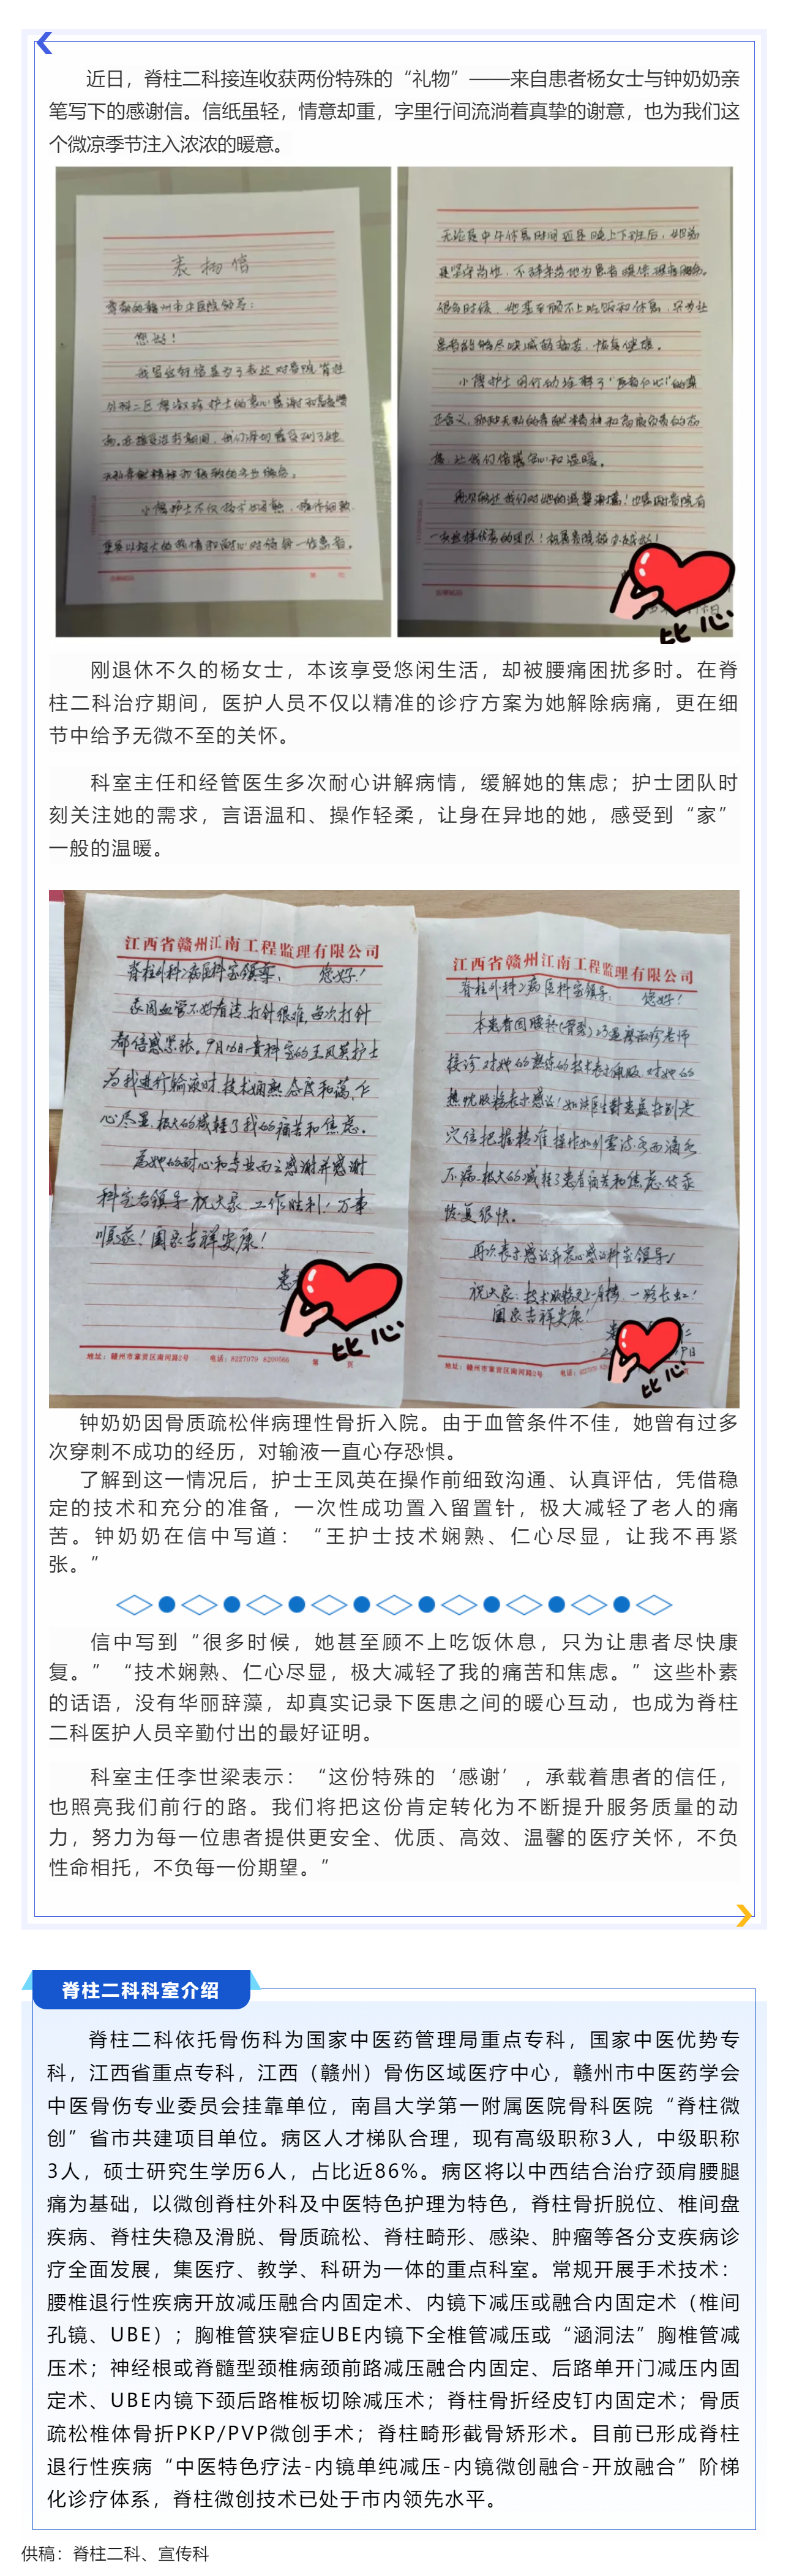 近日，脊柱二科接连收获两份特殊的“礼物”——来自患者杨女士与钟奶奶亲
笔写下的感谢信。信纸虽轻，情意却重，字里行间流淌着真挚的谢意，也为我们这
个微凉季节注入浓浓的暖意。
表扬信
您好！
无论是中午休息时间还是晚上下班后，她总
很多时候，她甚至顾不上吃饭和休息，只为让
患者能够尽快减轻痛苦，恢复健康。
比心
刚退休不久的杨女士，本该享受悠闲生活，却被腰痛困扰多时。在脊
柱二科治疗期间，医护人员不仅以精准的诊疗方案为她解除病痛，更在细
节中给予无微不至的关怀。
科室主任和经管医生多次耐心讲解病情，缓解她的焦虑；护士团队时
刻关注她的需求，言语温和、操作轻柔，让身在异地的她，感受到“家”
一般的温暖。
江西省赣州江南工程监理有限公司
脊柱外科2病区科室领导： 您好！
我因血管不好看清，打针很难，每次打针
都倍感紧张。9月16日贵科室的王凤英护士
为我进行输液时，技术娴熟态度和蔼，仁
心尽显，极大的减轻了我的痛苦和焦虑。
为她的耐心和专业而立感谢并感谢
科室各领导 祝大家 工作胜利！万事
顺遂！国泰吉祥安康！
比心
地址：赣州市章贡区南河路2号 电话：8227079 8200566 第 页
江西省赣州江南工程监理有限公司
脊柱外科2病区科室领导： 您好！
接诊，对她的熟练的技术表示佩服，对她的
穴位把握精准
不漏，极大的减轻了患者痛苦和焦虑
恢复很快。
再次表示感谢并衷心感谢科室领导！
国泰吉祥安康！
比心
地址：赣州市章贡区南河路2号
钟奶奶因骨质疏松伴病理性骨折入院。由于血管条件不佳，她曾有过多
次穿刺不成功的经历，对输液一直心存恐惧。
了解到这一情况后，护士王凤英在操作前细致沟通、认真评估，凭借稳
定的技术和充分的准备，一次性成功置入留置针，极大减轻了老人的痛
苦。钟奶奶在信中写道：“王护士技术娴熟、仁心尽显，让我不再紧
张。”
信中写到“很多时候，她甚至顾不上吃饭休息，只为让患者尽快康
复。”“技术娴熟、仁心尽显，极大减轻了我的痛苦和焦虑。”这些朴素
的话语，没有华丽辞藻，却真实记录下医患之间的暖心互动，也成为脊柱
二科医护人员辛勤付出的最好证明。
科室主任李世梁表示：“这份特殊的‘感谢’，承载着患者的信任，
也照亮我们前行的路。我们将把这份肯定转化为不断提升服务质量的动
力，努力为每一位患者提供更安全、优质、高效、温馨的医疗关怀，不负
性命相托，不负每一份期望。”
脊柱二科科室介绍
脊柱二科依托骨伤科为国家中医药管理局重点专科，国家中医优势专
科，江西省重点专科，江西（赣州）骨伤区域医疗中心，赣州市中医药学会
中医骨伤专业委员会挂靠单位，南昌大学第一附属医院骨科医院“脊柱微
创”省市共建项目单位。病区人才梯队合理，现有高级职称3人，中级职称
3人，硕士研究生学历6人，占比近86%。病区将以中西结合治疗颈肩腰腿
痛为基础，以微创脊柱外科及中医特色护理为特色，脊柱骨折脱位、椎间盘
疾病、脊柱失稳及滑脱、骨质疏松、脊柱畸形、感染、肿瘤等各分支疾病诊
疗全面发展，集医疗、教学、科研为一体的重点科室。常规开展手术技术：
腰椎退行性疾病开放减压融合内固定术、内镜下减压或融合内固定术（椎间
孔镜、UBE）；胸椎管狭窄症UBE内镜下全椎管减压或“涵洞法”胸椎管减
压术；神经根或脊髓型颈椎病颈前路减压融合内固定、后路单开门减压内固
定术、UBE内镜下颈后路椎板切除减压术；脊柱骨折经皮钉内固定术；骨质
疏松椎体骨折PKP/PVP微创手术；脊柱畸形截骨矫形术。目前已形成脊柱
退行性疾病“中医特色疗法-内镜单纯减压-内镜微创融合-开放融合”阶梯
化诊疗体系，脊柱微创技术已处于市内领先水平。
供稿：脊柱二科、宣传科